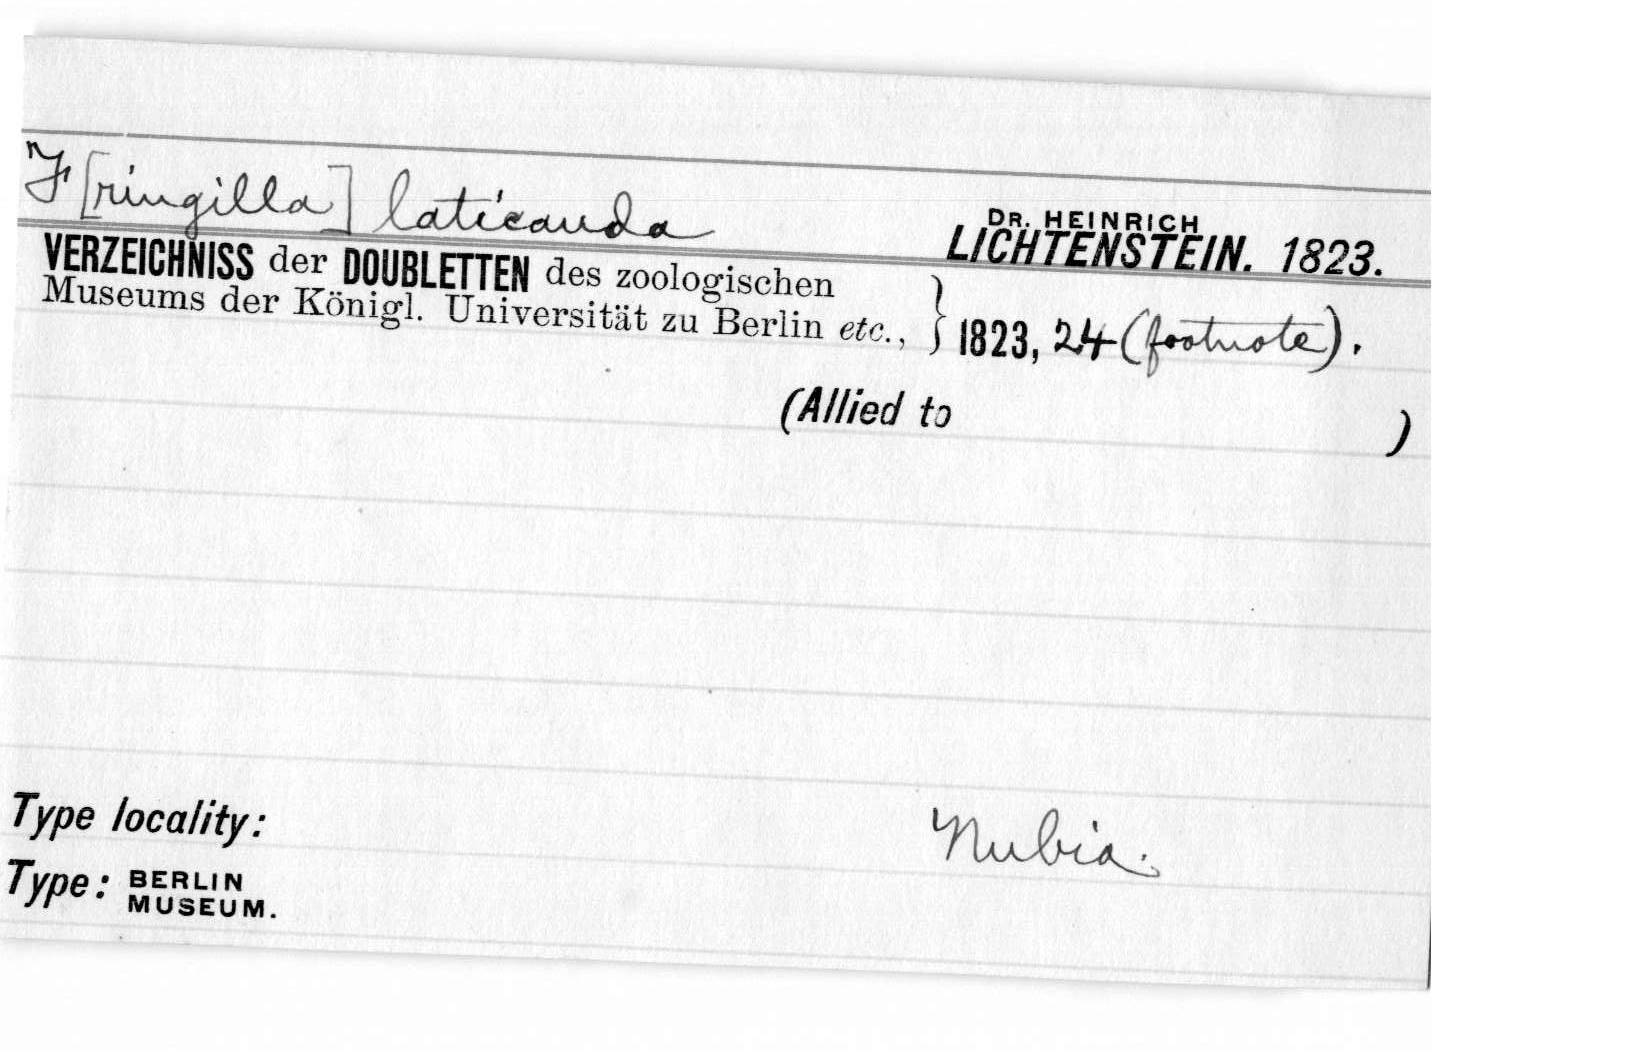 F[ringilla] laticauda
DR. HEINRICH
LICHTENSTEIN. 1823.
VERZEICHNISS der DOUBLETTEN des zoologischen
Museums der Königl. Universität zu Berlin etc., } 1823, 24 (footnote).
(Allied to )
Type locality: Nubia.
Type: BERLIN
MUSEUM.